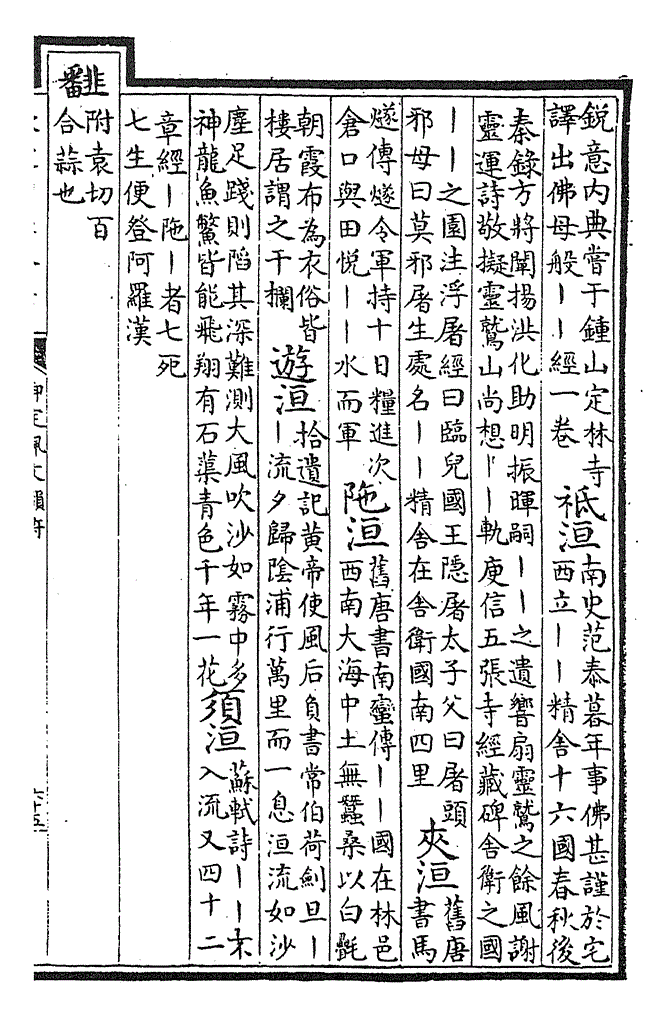 鋭意内典嘗于鍾山定林寺
譯出佛母般||經一卷
祗洹
南史范泰暮年事佛甚謹於宅
西立||精舍十六國春秋後
秦錄方將闡揚洪化助明振暉嗣||之遺響扇靈鷲之餘風謝
靈運詩敬擬靈鷲山尚想||軌庾信五張寺經藏碑舍衛之國
||之園注浮屠經曰臨兒國王隠屠太子父曰屠頭
邪母曰莫邪屠生處名||精舍在舎衛國南四里
夾洹
舊唐
書馬
燧傳燧令軍持十日糧進次
倉口與田悦||水而軍
陁洹
舊唐書南蠻傳||國在林邑
西南大海中土無蠶桑以白㲲
朝霞布為衣俗皆
樓居謂之干欄
遊洹
拾遺記黄帝使風后負書常伯荷劍旦|
|流夕歸陰浦行萬里而一息洹流如沙
塵足踐則陷其深難測大風吹沙如霧中多
神龍魚鱉皆能飛翔有石蕖青色千年一花
須洹
蘇軾詩||未
入流又四十二
章經|陁|者七死
七生便登阿羅漢
𩇯
附袁切百
合蒜也